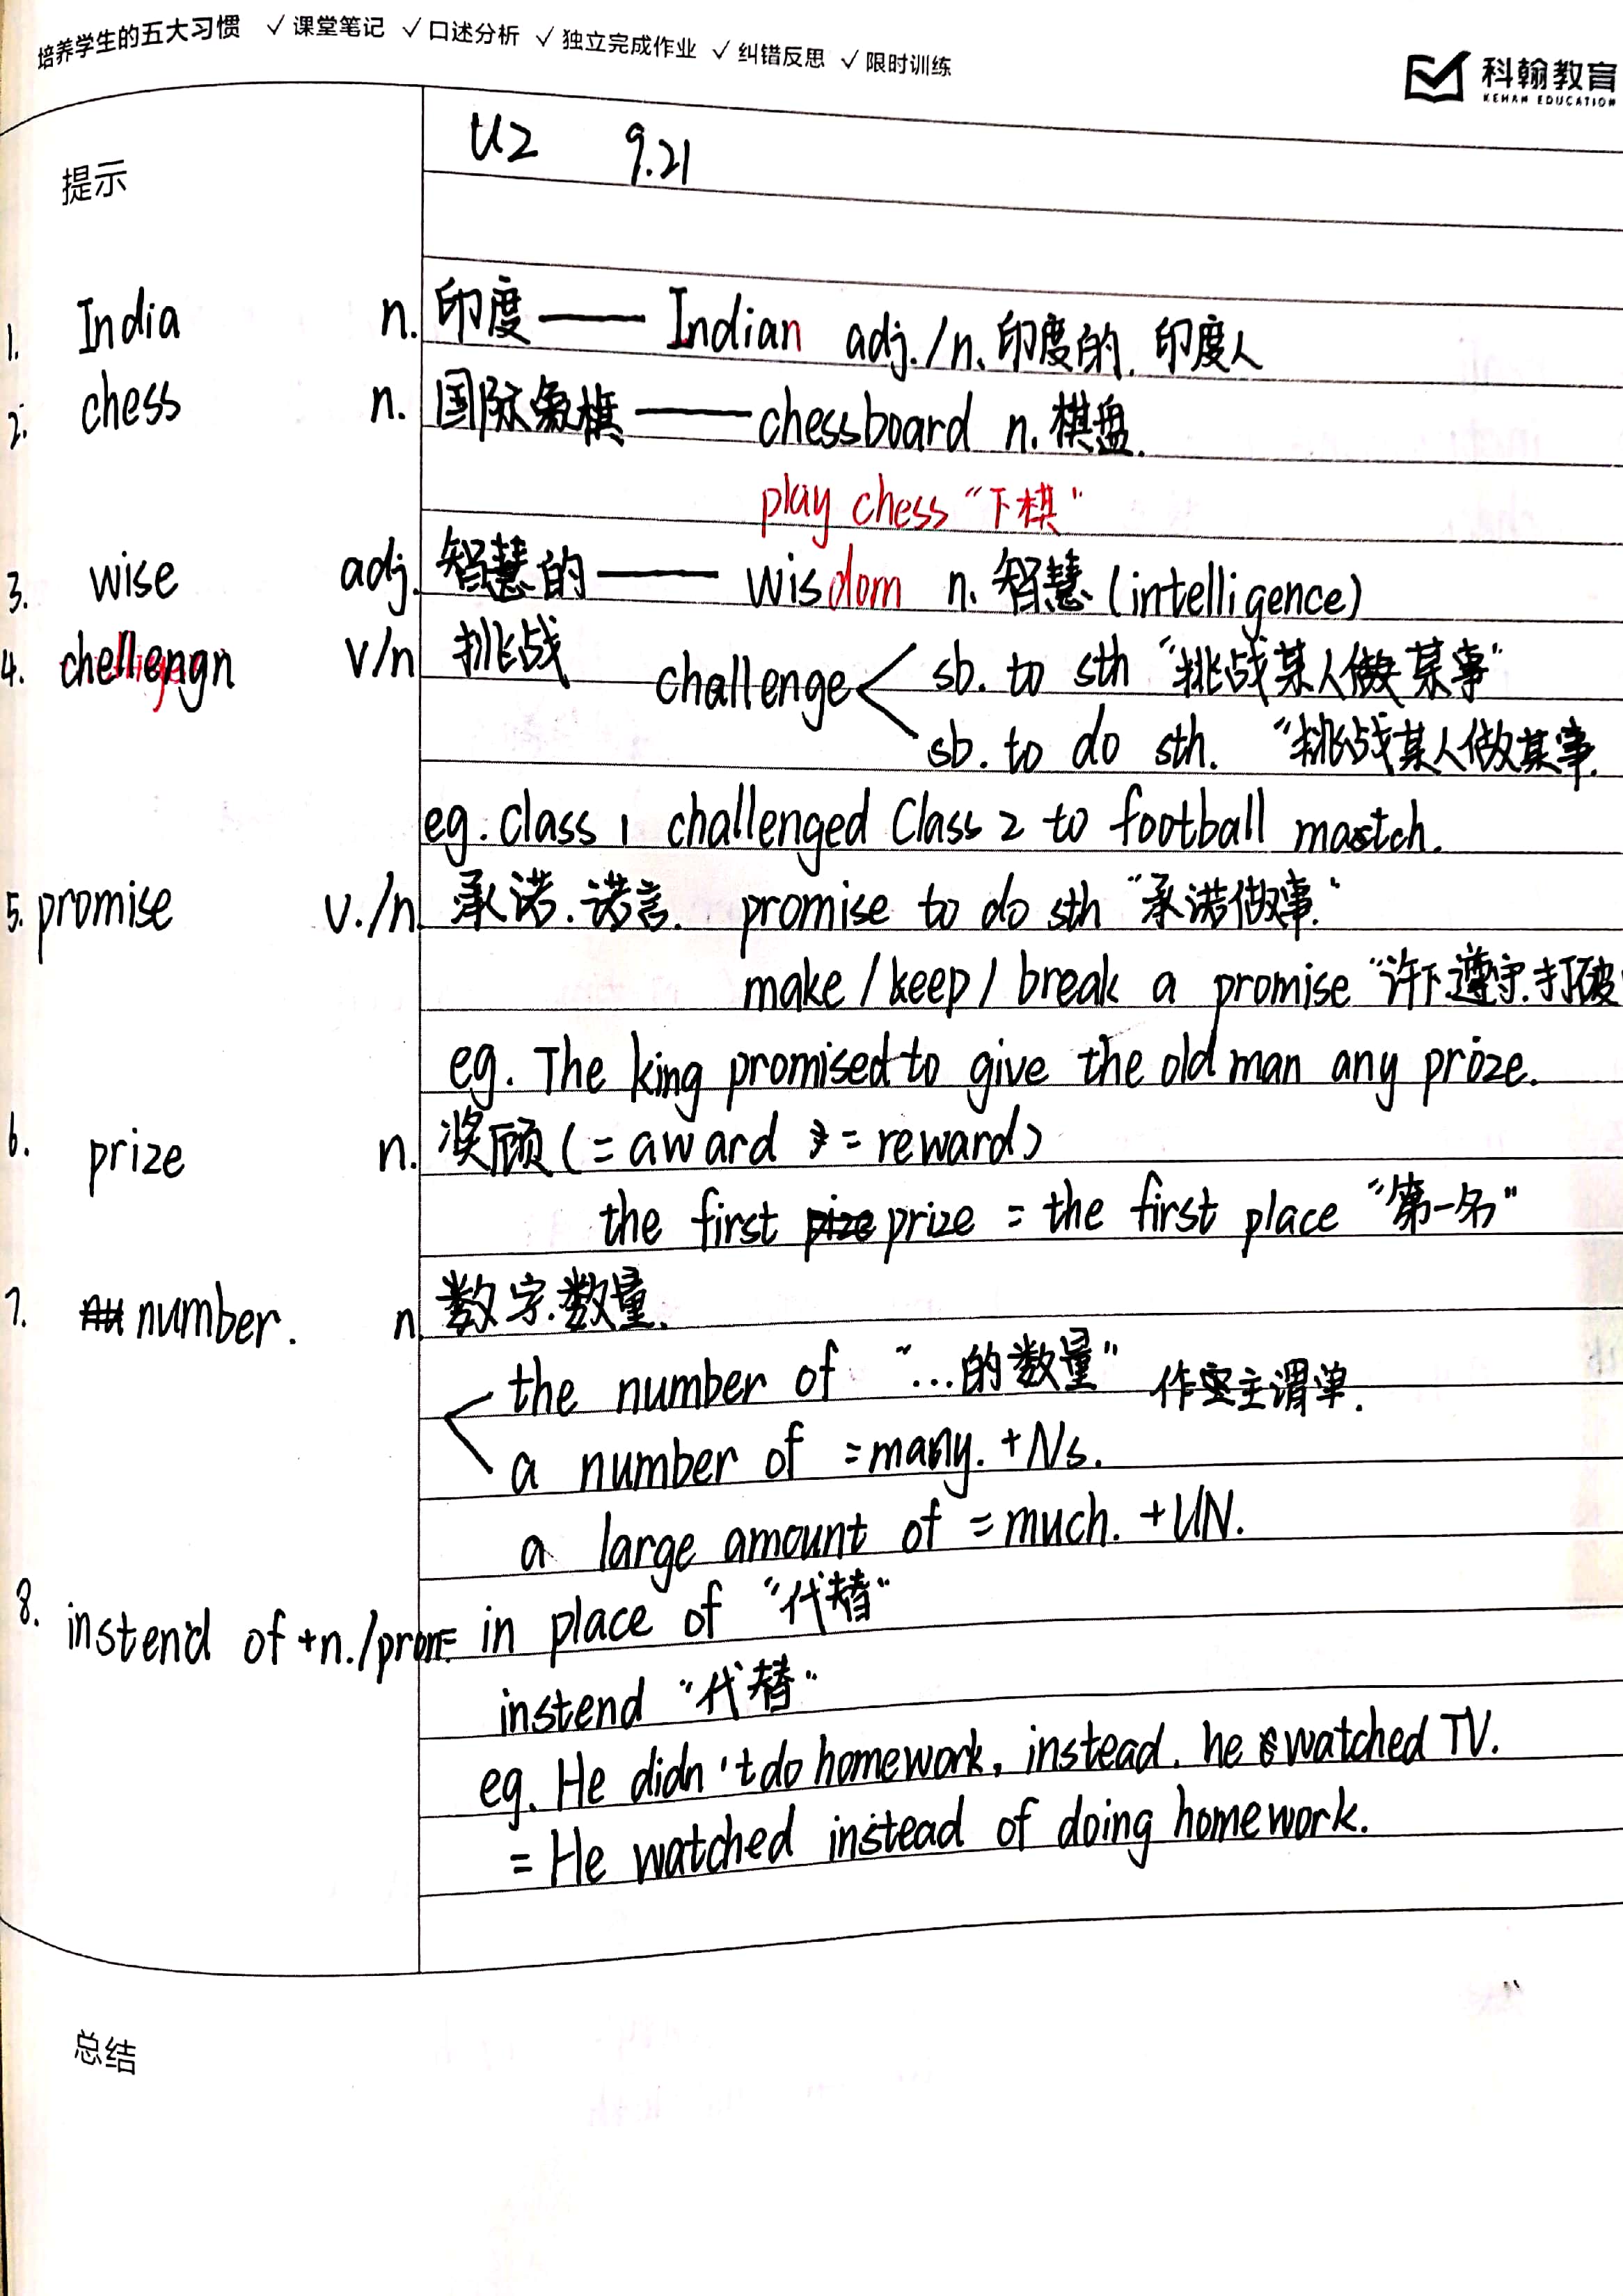 培养学生的五大习惯 ✓课堂笔记 ✓口述分析 ✓独立完成作业 ✓纠错反思 ✓限时训练
科翰教育
KEHAN EDUCATION
提示
U2 9.21
1. India n. 印度 —— Indian adj./n. 印度的. 印度人
2. chess n. 国际象棋 —— chessboard n. 棋盘.
play chess "下棋"
3. wise adj. 智慧的 —— wisdom n. 智慧 (intelligence)
4. chellengn v/n 挑战 challenge < sb. to sth "挑战某人做某事"
sb. to do sth. "挑战某人做某事.
eg. Class 1 challenged Class 2 to football mastch.
5. promise v./n. 承诺. 诺言. promise to do sth "承诺做事."
make / keep / break a promise "许下遵守.打破
eg. The king promised to give the old man any prize.
6. prize n. 奖顾 (= award = reward)
the first prize = the first place "第一名"
7. number. n. 数字.数量.
the number of "...的数量" 作主谓单.
a number of = many. + Ns.
a large amount of = much. + UN.
8. instend of + n./pron = in place of "代替"
instend "代替"
eg. He didn't do homework, instead. he watched TV.
= He watched instead of doing homework.
总结